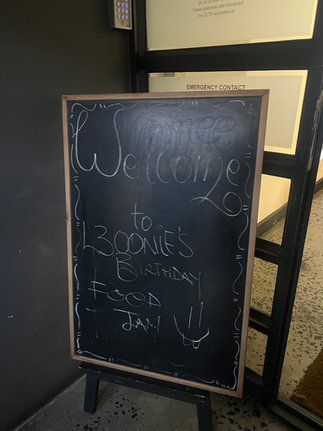 These premises are monitored
by CCTV surveillance.
EMERGENCY CONTACT
Welcome
to
L3OONIE'S
BIRTHDAY
FOOD
JAM